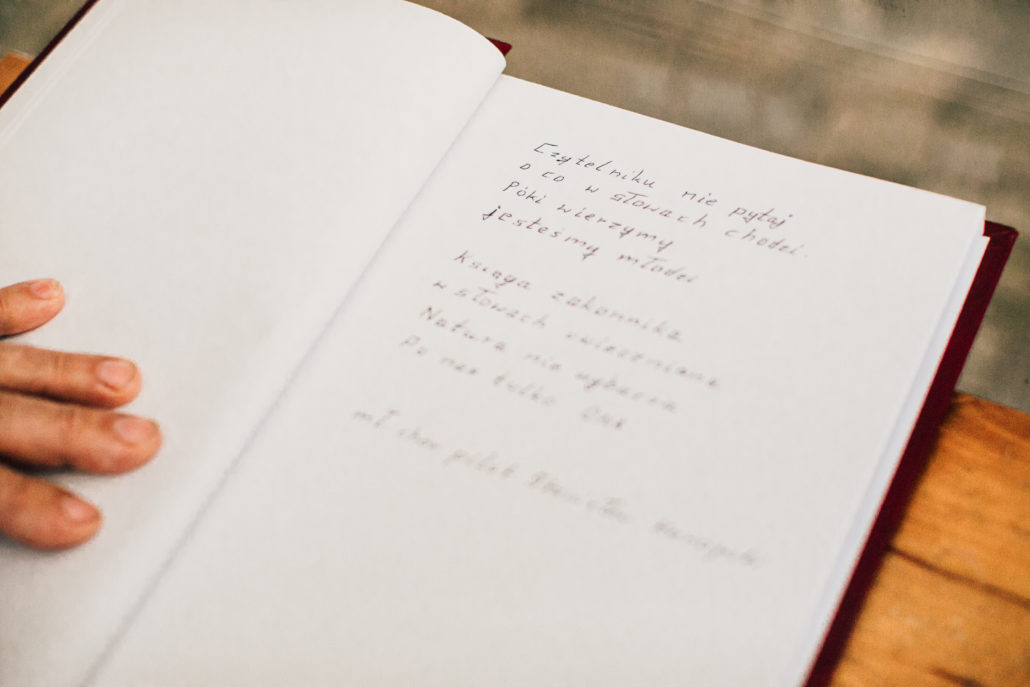 Czytelniku nie pytaj
o co w słowach chodzi.
Póki wierzymy
jesteśmy młodzi
Księga zakonnika
w słowach uwieczniona
Natura nie wybacza
Po nas tylko